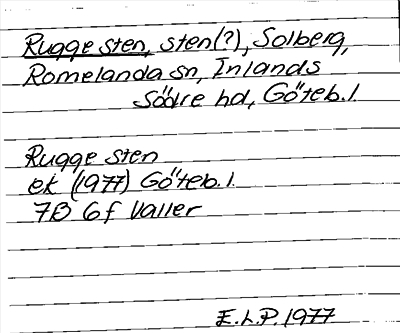 Rugge sten, sten(?), Solberg,
Romelanda sn, Inlands
Södre hd, Göteb. l.
Rugge sten
ek (1977) Göteb. l.
7B 6f Valler
E.L.P. 1977